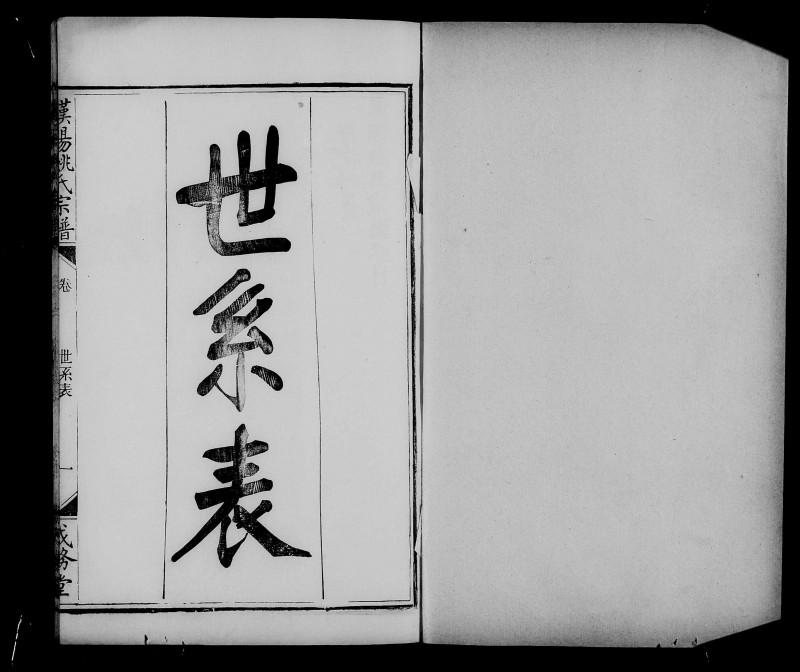 世系表
漢陽姚氏宗譜
卷
世系表
一
成務堂